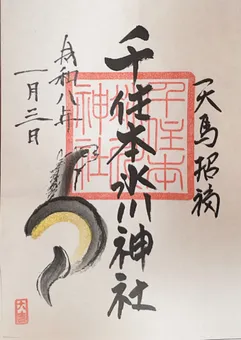 天馬招福
千住本氷川神社
千住本氷川神社
令和八年
一月三日